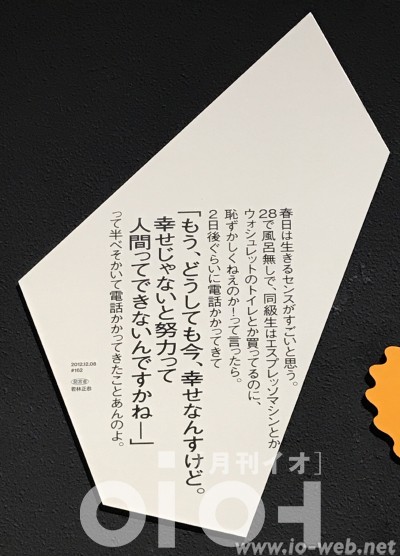 春日は生きるセンスがすごいと思う。
28で風呂無しで、同級生はエスプレッソマシンとか
ウォシュレットのトイレとか買ってるのに、
恥ずかしくねえのか！って言ったら。
2日後ぐらいに電話かかってきて
「もう、どうしても今、幸せなんすけど。
幸せじゃないと努力って
人間ってできないんですかねー」
って半べそかいて電話かかってきたことあんのよ。
2012.12.08
#162
若林正恭
月刊イオ]
이어
www.io-web.net